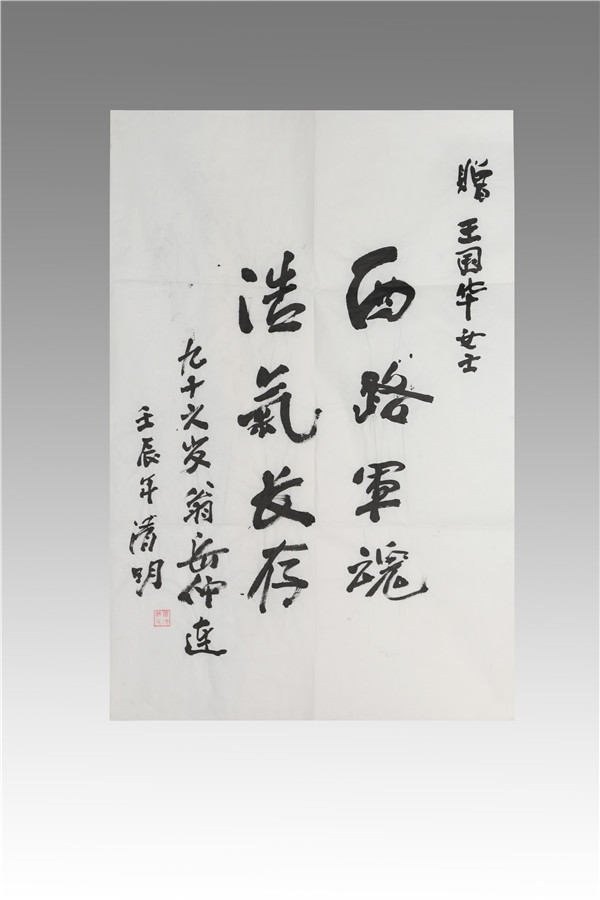 贈 王国华女士
西路軍魂
浩氣长存
九十六岁翁岳仲连
壬辰年清明